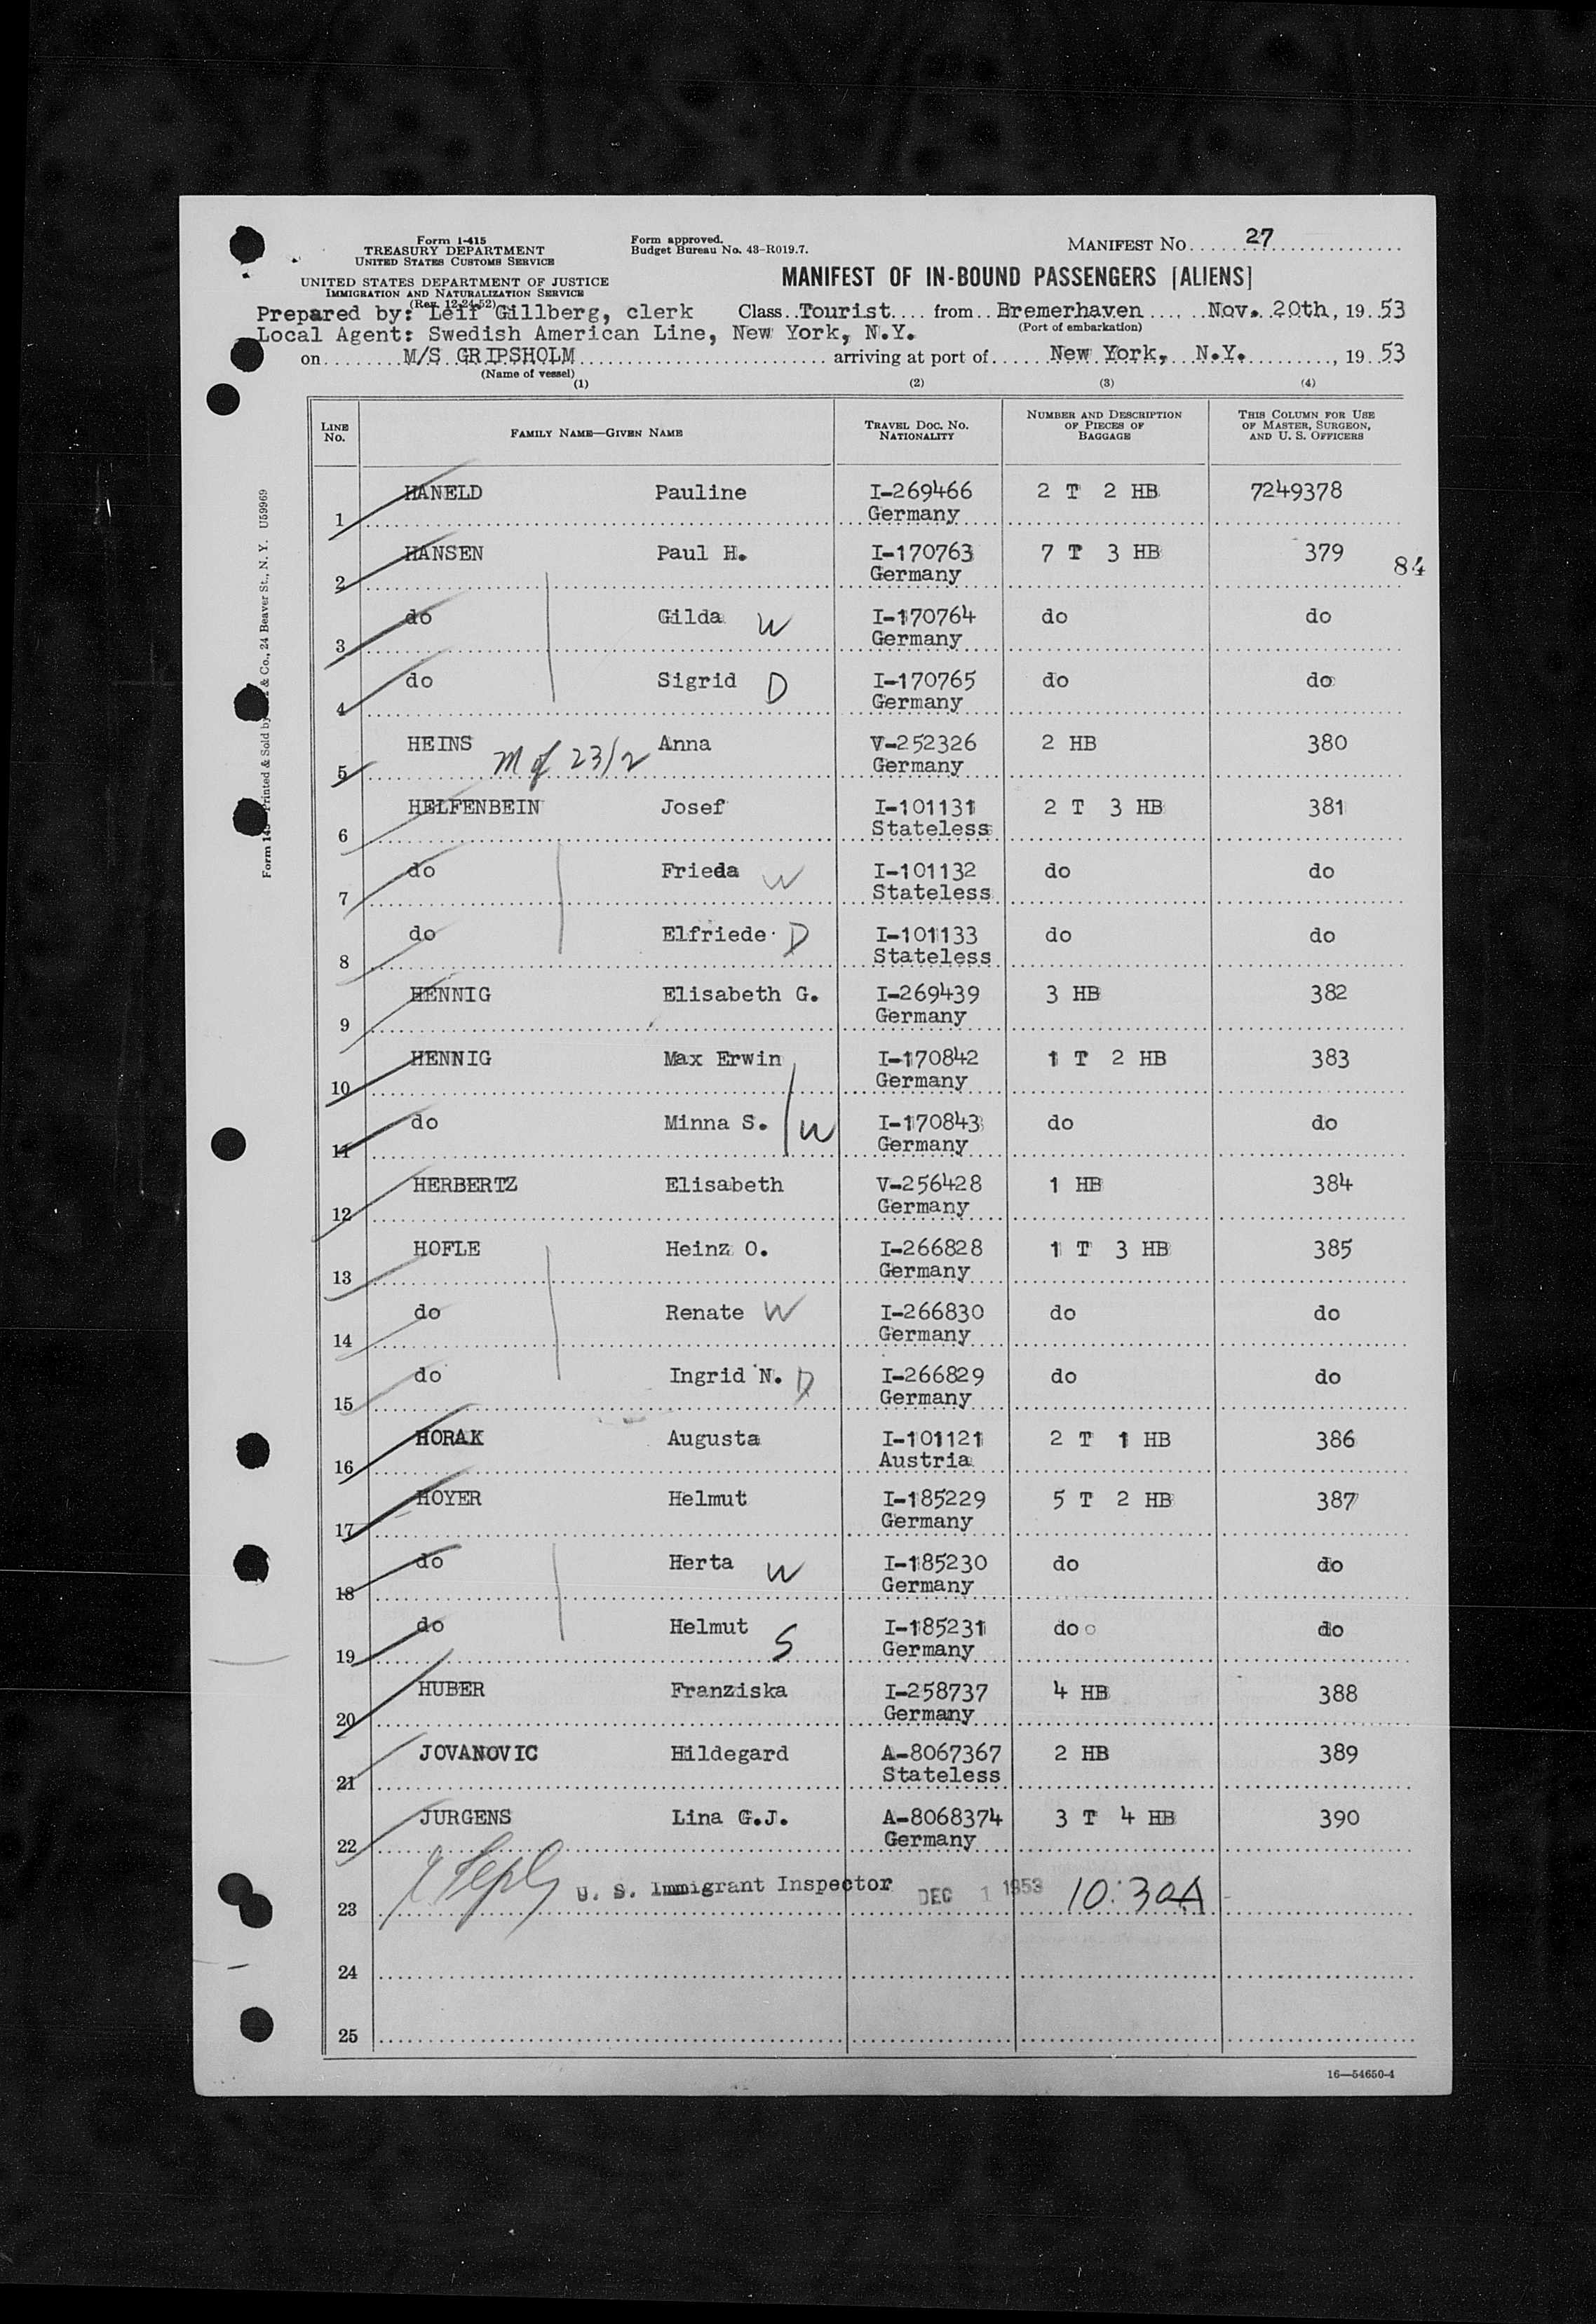 Form I-415
TREASURY DEPARTMENT
UNITED STATES CUSTOMS SERVICE
UNITED STATES DEPARTMENT OF JUSTICE
IMMIGRATION AND NATURALIZATION SERVICE
(Rev. 12-24-52)
Form approved.
Budget Bureau No. 43-R019.7.
MANIFEST NO. 27
MANIFEST OF IN-BOUND PASSENGERS [ALIENS]
Prepared by: Leif Gillberg, clerk Class Tourist from Bremerhaven Nov. 20th, 19 53
(Port of embarkation)
Local Agent: Swedish American Line, New York, N.Y.
on M/S GRIPSHOLM arriving at port of New York, N.Y. , 19 53
(Name of vessel)
(1) (2) (3) (4)
LINE NO. FAMILY NAME—GIVEN NAME TRAVEL DOC. NO. NATIONALITY NUMBER AND DESCRIPTION OF PIECES OF BAGGAGE THIS COLUMN FOR USE OF MASTER, SURGEON, AND U. S. OFFICERS
1 HANELD Pauline I-269466 Germany 2 T 2 HB 7249378
2 HANSEN Paul H. I-170763 Germany 7 T 3 HB 379 84
3 do Gilda W I-170764 Germany do do
4 do Sigrid D I-170765 Germany do do
5 HEINS M of 23/2 Anna V-252326 Germany 2 HB 380
6 HELFENBEIN Josef I-101131 Stateless 2 T 3 HB 381
7 do Frieda W I-101132 Stateless do do
8 do Elfriede D I-101133 Stateless do do
9 HENNIG Elisabeth G. I-269439 Germany 3 HB 382
10 HENNIG Max Erwin I-170842 Germany 1 T 2 HB 383
11 do Minna S. W I-170843 Germany do do
12 HERBERTZ Elisabeth V-256428 Germany 1 HB 384
13 HOFLE Heinz O. I-266828 Germany 1 T 3 HB 385
14 do Renate W I-266830 Germany do do
15 do Ingrid N. D I-266829 Germany do do
16 HORAK Augusta I-101121 Austria 2 T 1 HB 386
17 HOYER Helmut I-185229 Germany 5 T 2 HB 387
18 do Herta W I-185230 Germany do do
19 do Helmut S I-185231 Germany do do
20 HUBER Franziska I-258737 Germany 4 HB 388
21 JOVANOVIC Hildegard A-8067367 Stateless 2 HB 389
22 JURGENS Lina G.J. A-8068374 Germany 3 T 4 HB 390
23 U. S. Immigrant Inspector DEC 1 1953 10:30A
24
25
16—54650-4
Printed & Sold by & Co., 24 Beaver St., N. Y. U59969